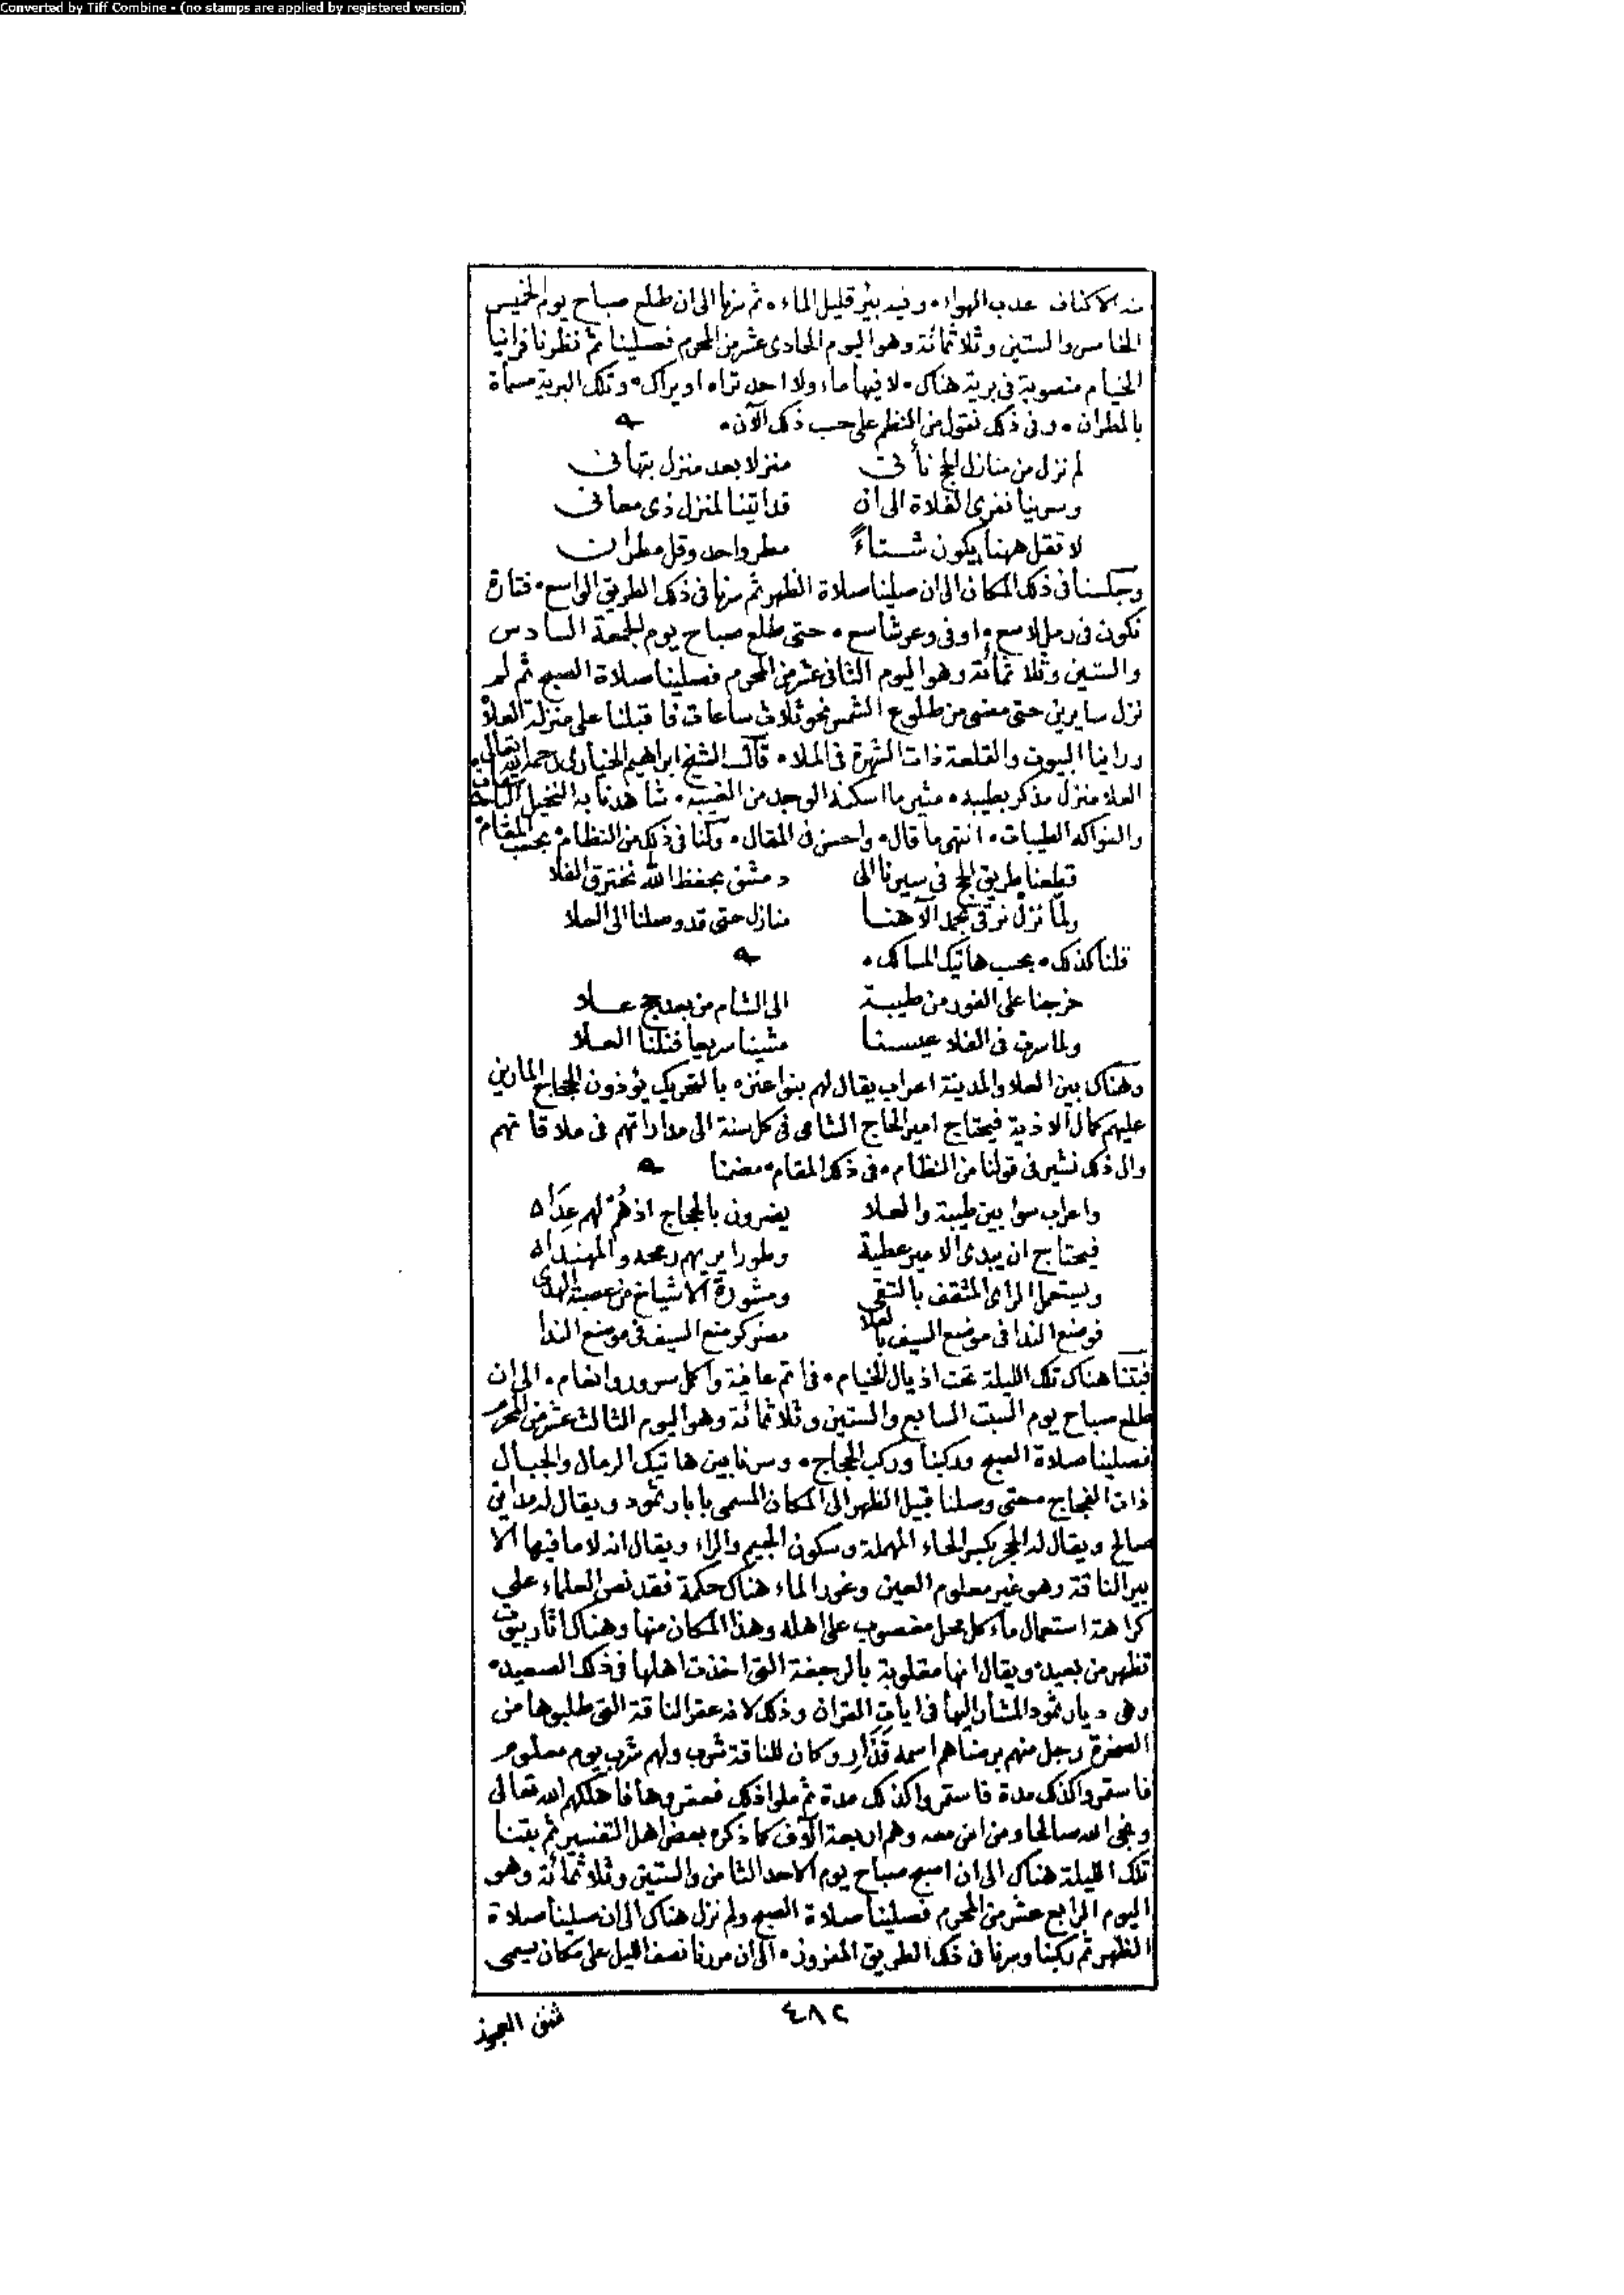 Converted by Tiff Combine - (no stamps are applied by registered version)
منه الاكناف عذب الهواء وفيه بئر قليل الماء ثم سرنا الى ان طلع صباح يوم الخميس
الخامس والستين وثلاثمائة وهو اليوم الحادى عشر من المحرم فصلينا ثم نظرنا فراينا
الخيام منصوبة فى برية هناك لا فيها ماء ولا احد تراه او يراك وتلك البرية مسماة
بالمطران وفى ذلك نقول من النظم على حسب ذلك الآن
لم نزل من منازل الحج نأتى منزلا بعد منزل بتهانى
وسرينا نفرى الفلاة الى ان قد اتينا لمنزل ذى معانى
لا تقل ههنا يكون شتاءً مطر واحد وقل مطران
وجلسنا فى ذلك المكان الى ان صلينا صلاة الظهر ثم سرنا فى ذلك الطريق الواسع فتارة
نكون فى رمل لامع او فى وعر شاسع حتى طلع صباح يوم الجمعة السادس
والستين وثلاثمائة وهو اليوم الثانى عشر من المحرم فصلينا صلاة الصبح ثم لم
نزل سايرين حتى مضى من طلوع الشمس نحو ثلاث ساعات فاقبلنا على منزلة العلا
وراينا البيوت والقلعة ذات الشهرة فى الملا قال الشيخ ابراهيم الخيارى رحمه الله تعالى
العلا منزل مذكر بطيبه مثير ما اسكنه الوجد من الغيبه شاهدنا به النخيل الباسقات
والفواكه الطيبات انتهى ما قال واحسن فى المقال وقلنا فى ذلك من النظام بحسب المقام
قطعنا طريق الحج فى سيرنا الى دمشق بحفظ الله نخترق الفلا
ولما نزل نرقى بحمد الاهنا منازل حتى قد وصلنا الى العلا
قلنا كذلك بحسب هاتيك المسالك
خرجنا على الفور من طيبة الى الشام من بعد حج علا
ولما سرت فى الفلا عيسنا مشينا سريعا فنلنا العلا
وهناك بين العلا والمدينة اعراب يقال لهم بنو اعنزه بالتحريك يؤذون الحجاج المارين
عليهم كمال الاذية فيحتاج امير الحاج الشامى فى كل سنة الى مداراتهم فى ملاقاتهم
والى ذلك نشير فى قولنا من النظام فى ذلك المقام مضمنا
واعراب سوا بين طيبة والعلا يضرون بالحجاج اذ هُم لهم عِدَاه
فيحتاج ان يبدى الامير عطية وطورا يريهم رمحه والمهنداه
ويستعمل الراى المثقف بالتقى ومشورة الاشياخ من عصبة الهدى
فوضع الندا فى موضع السيف بالعلا مضر كوضع السيف فى موضع الندا
فبتنا هناك تلك الليلة تحت اذيال الخيام فى اتم عافية واكمل سرور وانعام الى ان
طلع صباح يوم السبت السابع والستين وثلاثمائة وهو اليوم الثالث عشر من المحرم
فصلينا صلاة الصبح وركبنا وركب الحجاج وسرنا بين هاتيك الرمال والجبال
ذات الفجاج حتى وصلنا قبيل الظهر الى المكان المسمى بابار ثمود ويقال له مداين
صالح ويقال له الحجر بكسر الحاء المهملة وسكون الجيم والراء ويقال انه لا ما فيها الا
بير الناقة وهو غير معلوم العين وغور الماء هناك حكمة فقد نص العلماء على
كراهة استعمال ماء كل محل مغضوب على اهله وهذا المكان منها وهناك اثار بيوت
تظهر من بعيد ويقال انها مقلوبة بالرجفة التى اخذت اهلها فى ذلك الصعيد
وهى ديار ثمود المشار اليها فى ايات القران وذلك لانه عقر الناقة التى طلبوها من
الصخرة رجل منهم برضاهم اسمه قُدَار وكان للناقة شرب ولهم شرب يوم معلوم
فاستمروا كذلك مدة فاستمروا كذلك مدة ثم ملوا ذلك فعقروها فاهلكهم الله تعالى
ونجى الله صالحا ومن امن معه وهم اربعة آلاف كما ذكره بعض اهل التفسير ثم بتنا
تلك الليلة هناك الى ان اصبح صباح يوم الاحد الثامن والستين وثلاثمائة وهو
اليوم الرابع عشر من المحرم فصلينا صلاة الصبح ولم نزل هناك الى ان صلينا صلاة
الظهر ثم ركبنا وسرنا فى ذلك الطريق المفروز الى ان مررنا نصف الليل على مكان يسمى
شق العجوز
٤٨٢